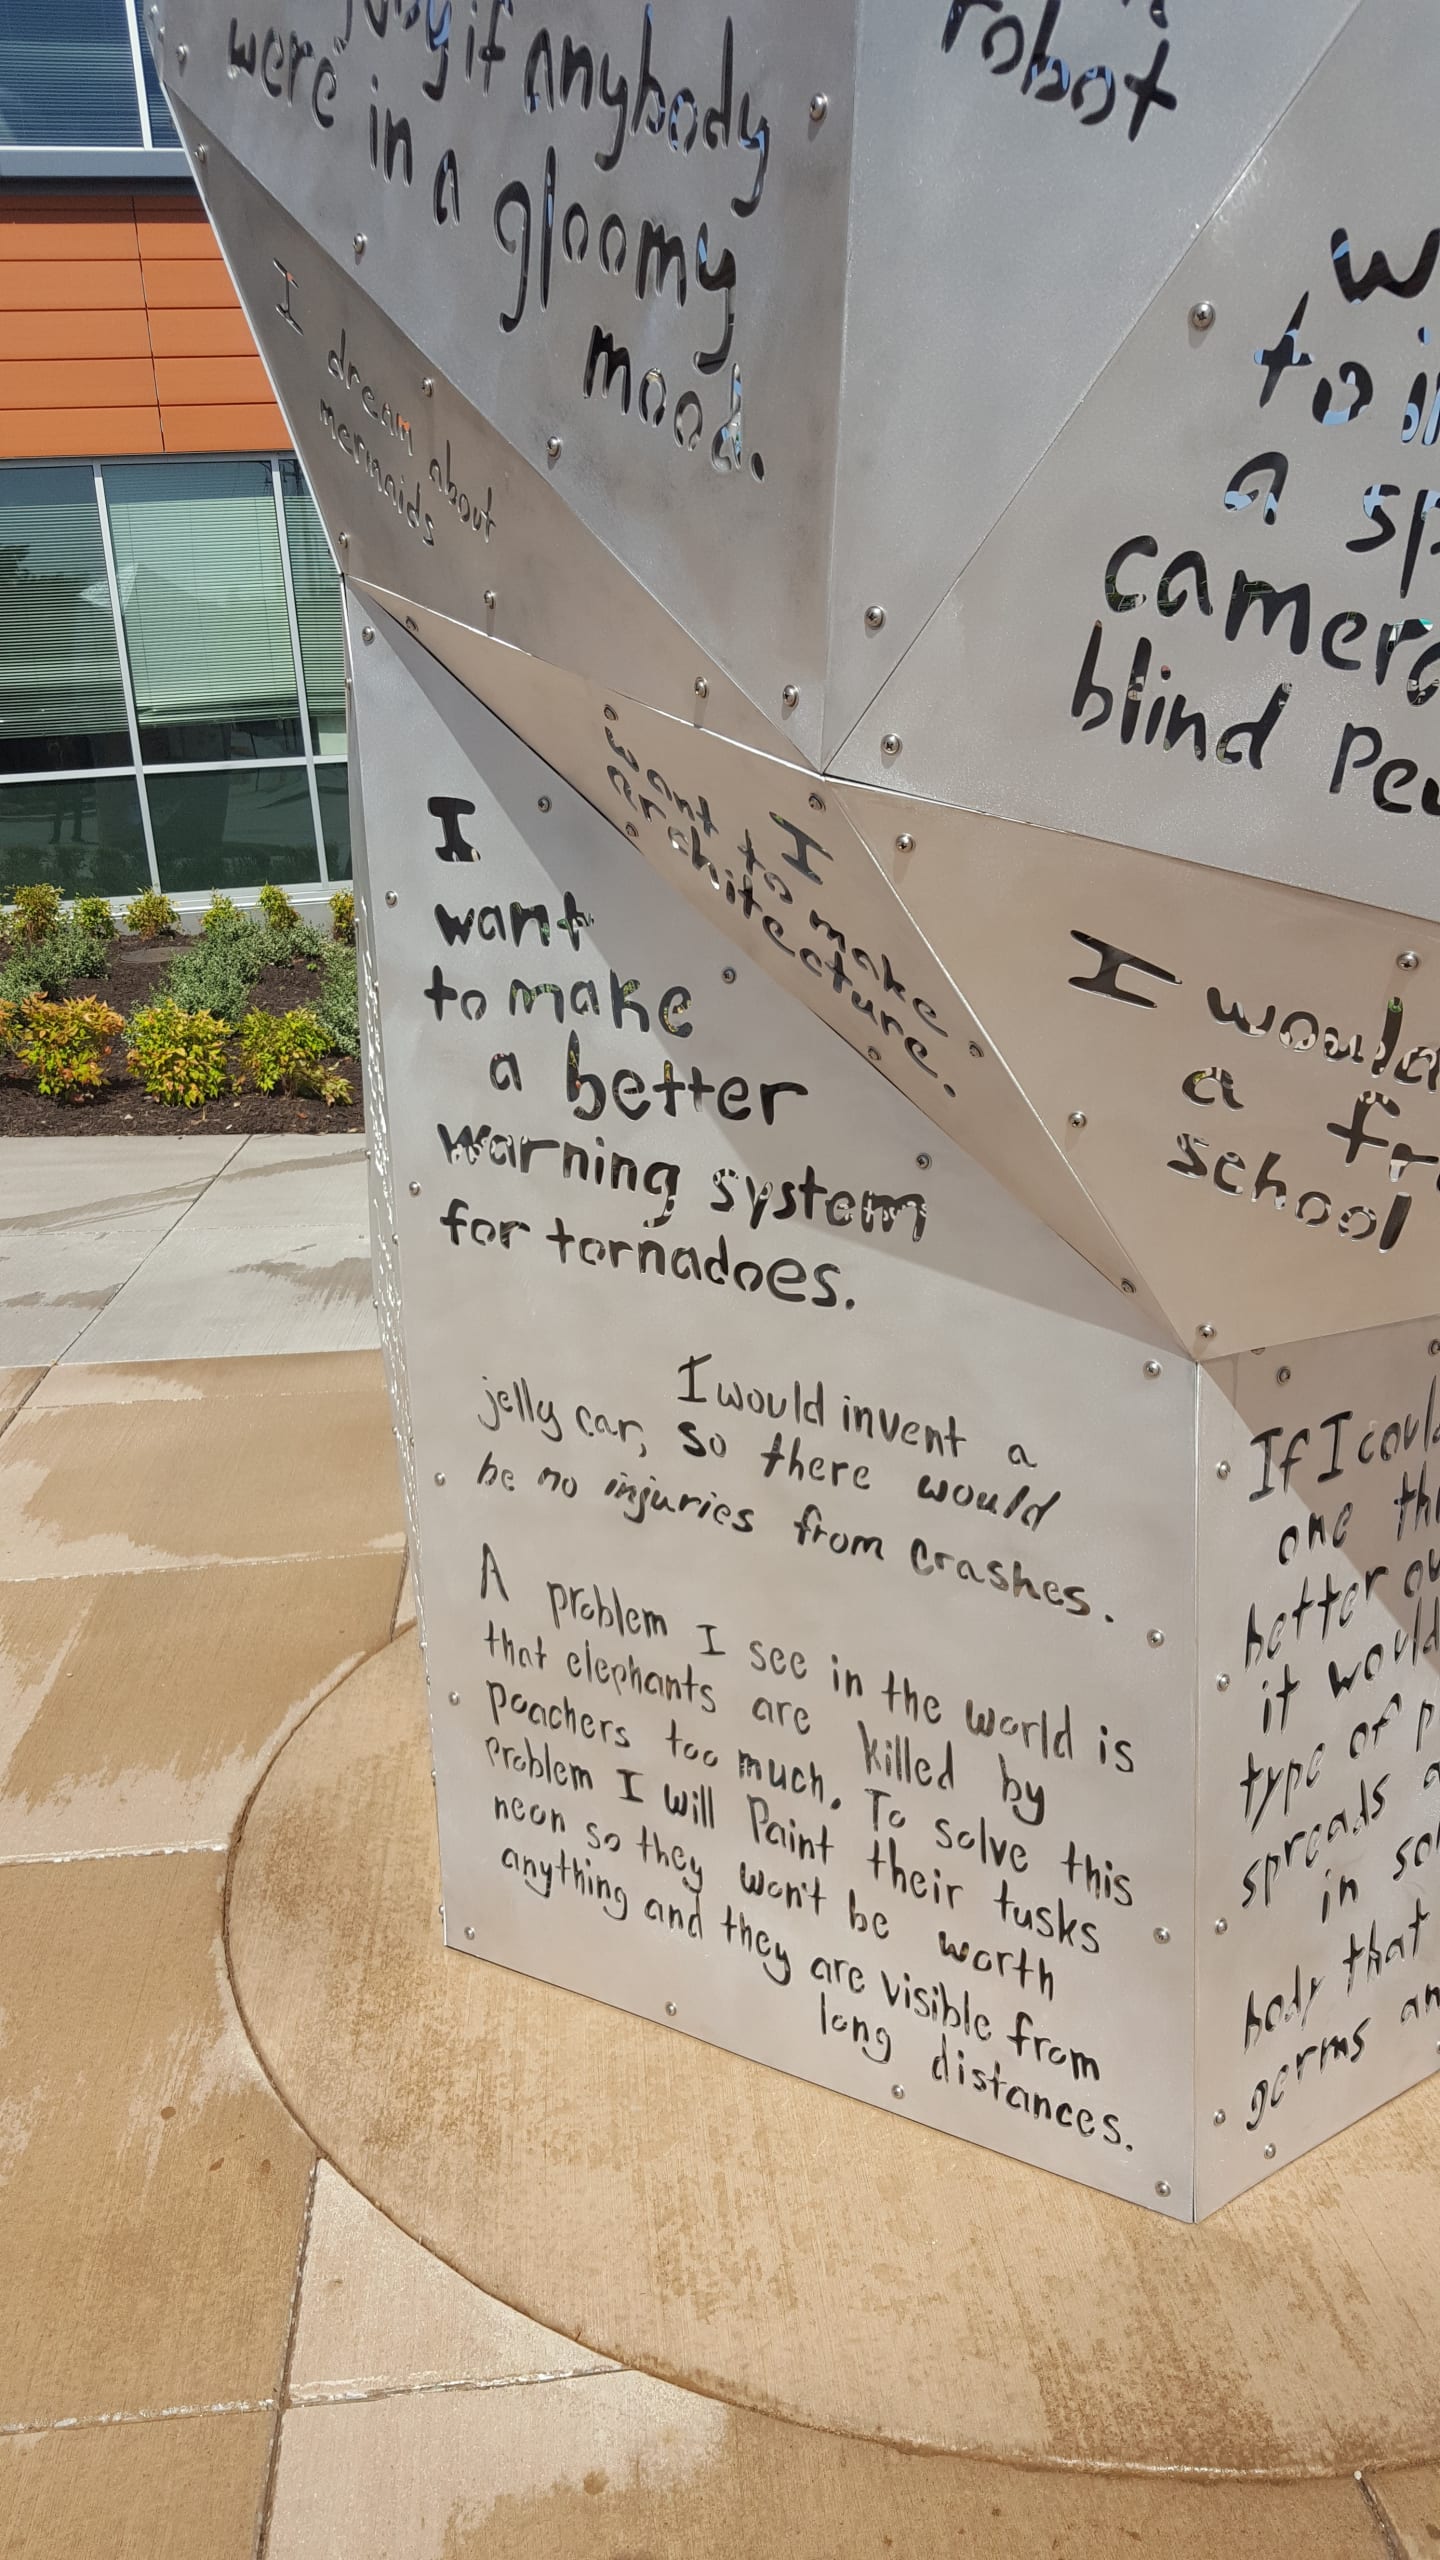 if anybody
were in a
gloomy
mood.
robot
I dream about
mermaids
a
camera
blind
I
want to make
architecture.
I would
a
school
I
want
to make
a better
warning system
for tornadoes.
I would invent a
jelly car, so there would
be no injuries from crashes.
A problem I see in the world is
that elephants are killed by
poachers too much. To solve this
problem I will Paint their tusks
neon so they won't be worth
anything and they are visible from
long distances.
If I could
one
better
it would
type of
spreads
in
body that
germs